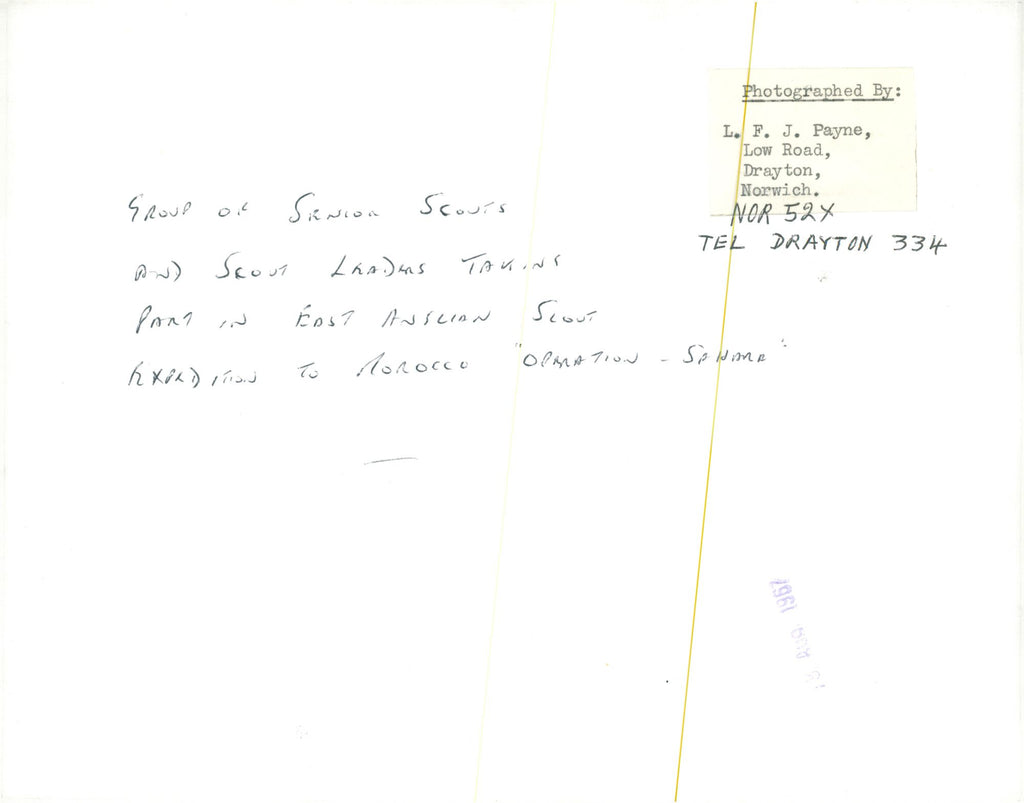 Photographed By:
L. F. J. Payne,
Low Road,
Drayton,
Norwich.
NOR 52X
TEL DRAYTON 334
GROUP OF SENIOR SCOUTS
AND SCOUT LEADERS TAKING
PART IN EAST ANGLIAN SCOUT
EXPEDITION TO MOROCCO "OPERATION -
AUG 1967